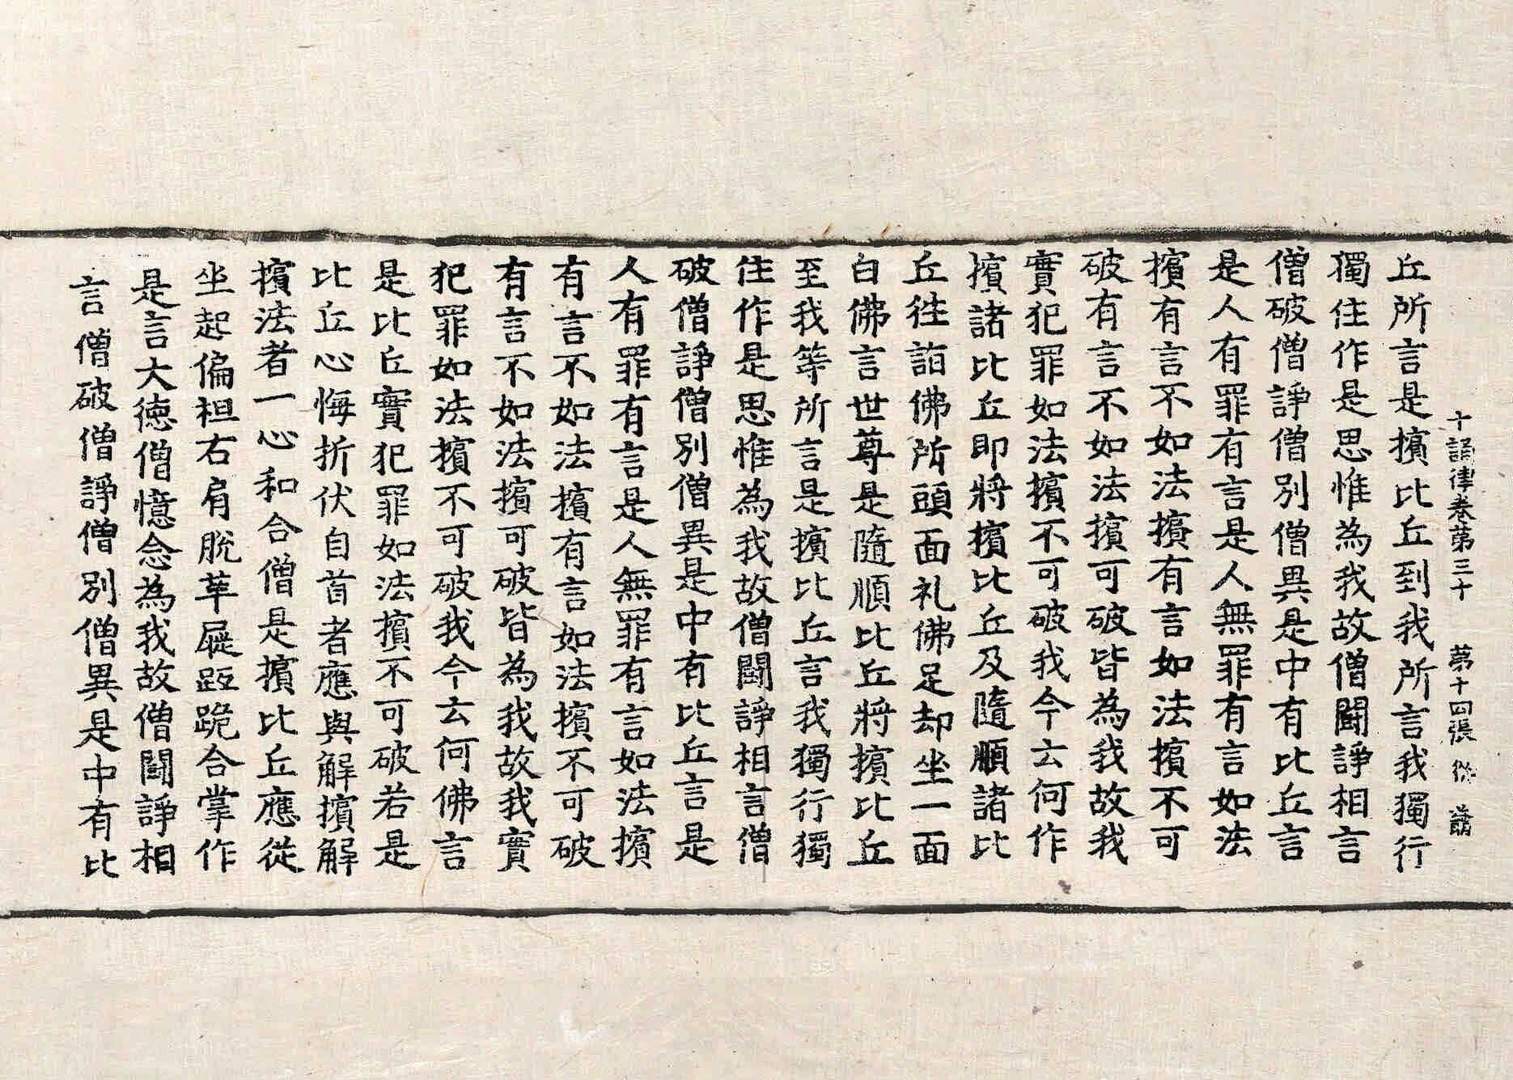 十誦律卷第三十 第十四張
丘所言是擯比丘到我所言我獨行
獨住作是思惟為我故僧鬪諍相言
僧破僧諍僧別僧異是中有比丘言
是人有罪有言是人無罪有言如法
擯有言不如法擯有言如法擯不可
破有言不如法擯可破皆為我故我
實犯罪如法擯不可破我今云何作
擯諸比丘即將擯比丘及隨順諸比
丘往詣佛所頭面礼佛足却坐一面
白佛言世尊是隨順比丘將擯比丘
至我等所言是擯比丘言我獨行獨
住作是思惟為我故僧鬪諍相言僧
破僧諍僧別僧異是中有比丘言是
人有罪有言是人無罪有言如法擯
有言不如法擯有言如法擯不可破
有言不如法擯可破皆為我故我實
犯罪如法擯不可破我今云何佛言
是比丘實犯罪如法擯不可破若是
比丘心悔折伏自首者應與解擯解
擯法者一心和合僧是擯比丘應從
坐起偏袒右肩脫革屣跪合掌作
是言大德僧憶念為我故僧鬪諍相
言僧破僧諍僧別僧異是中有比